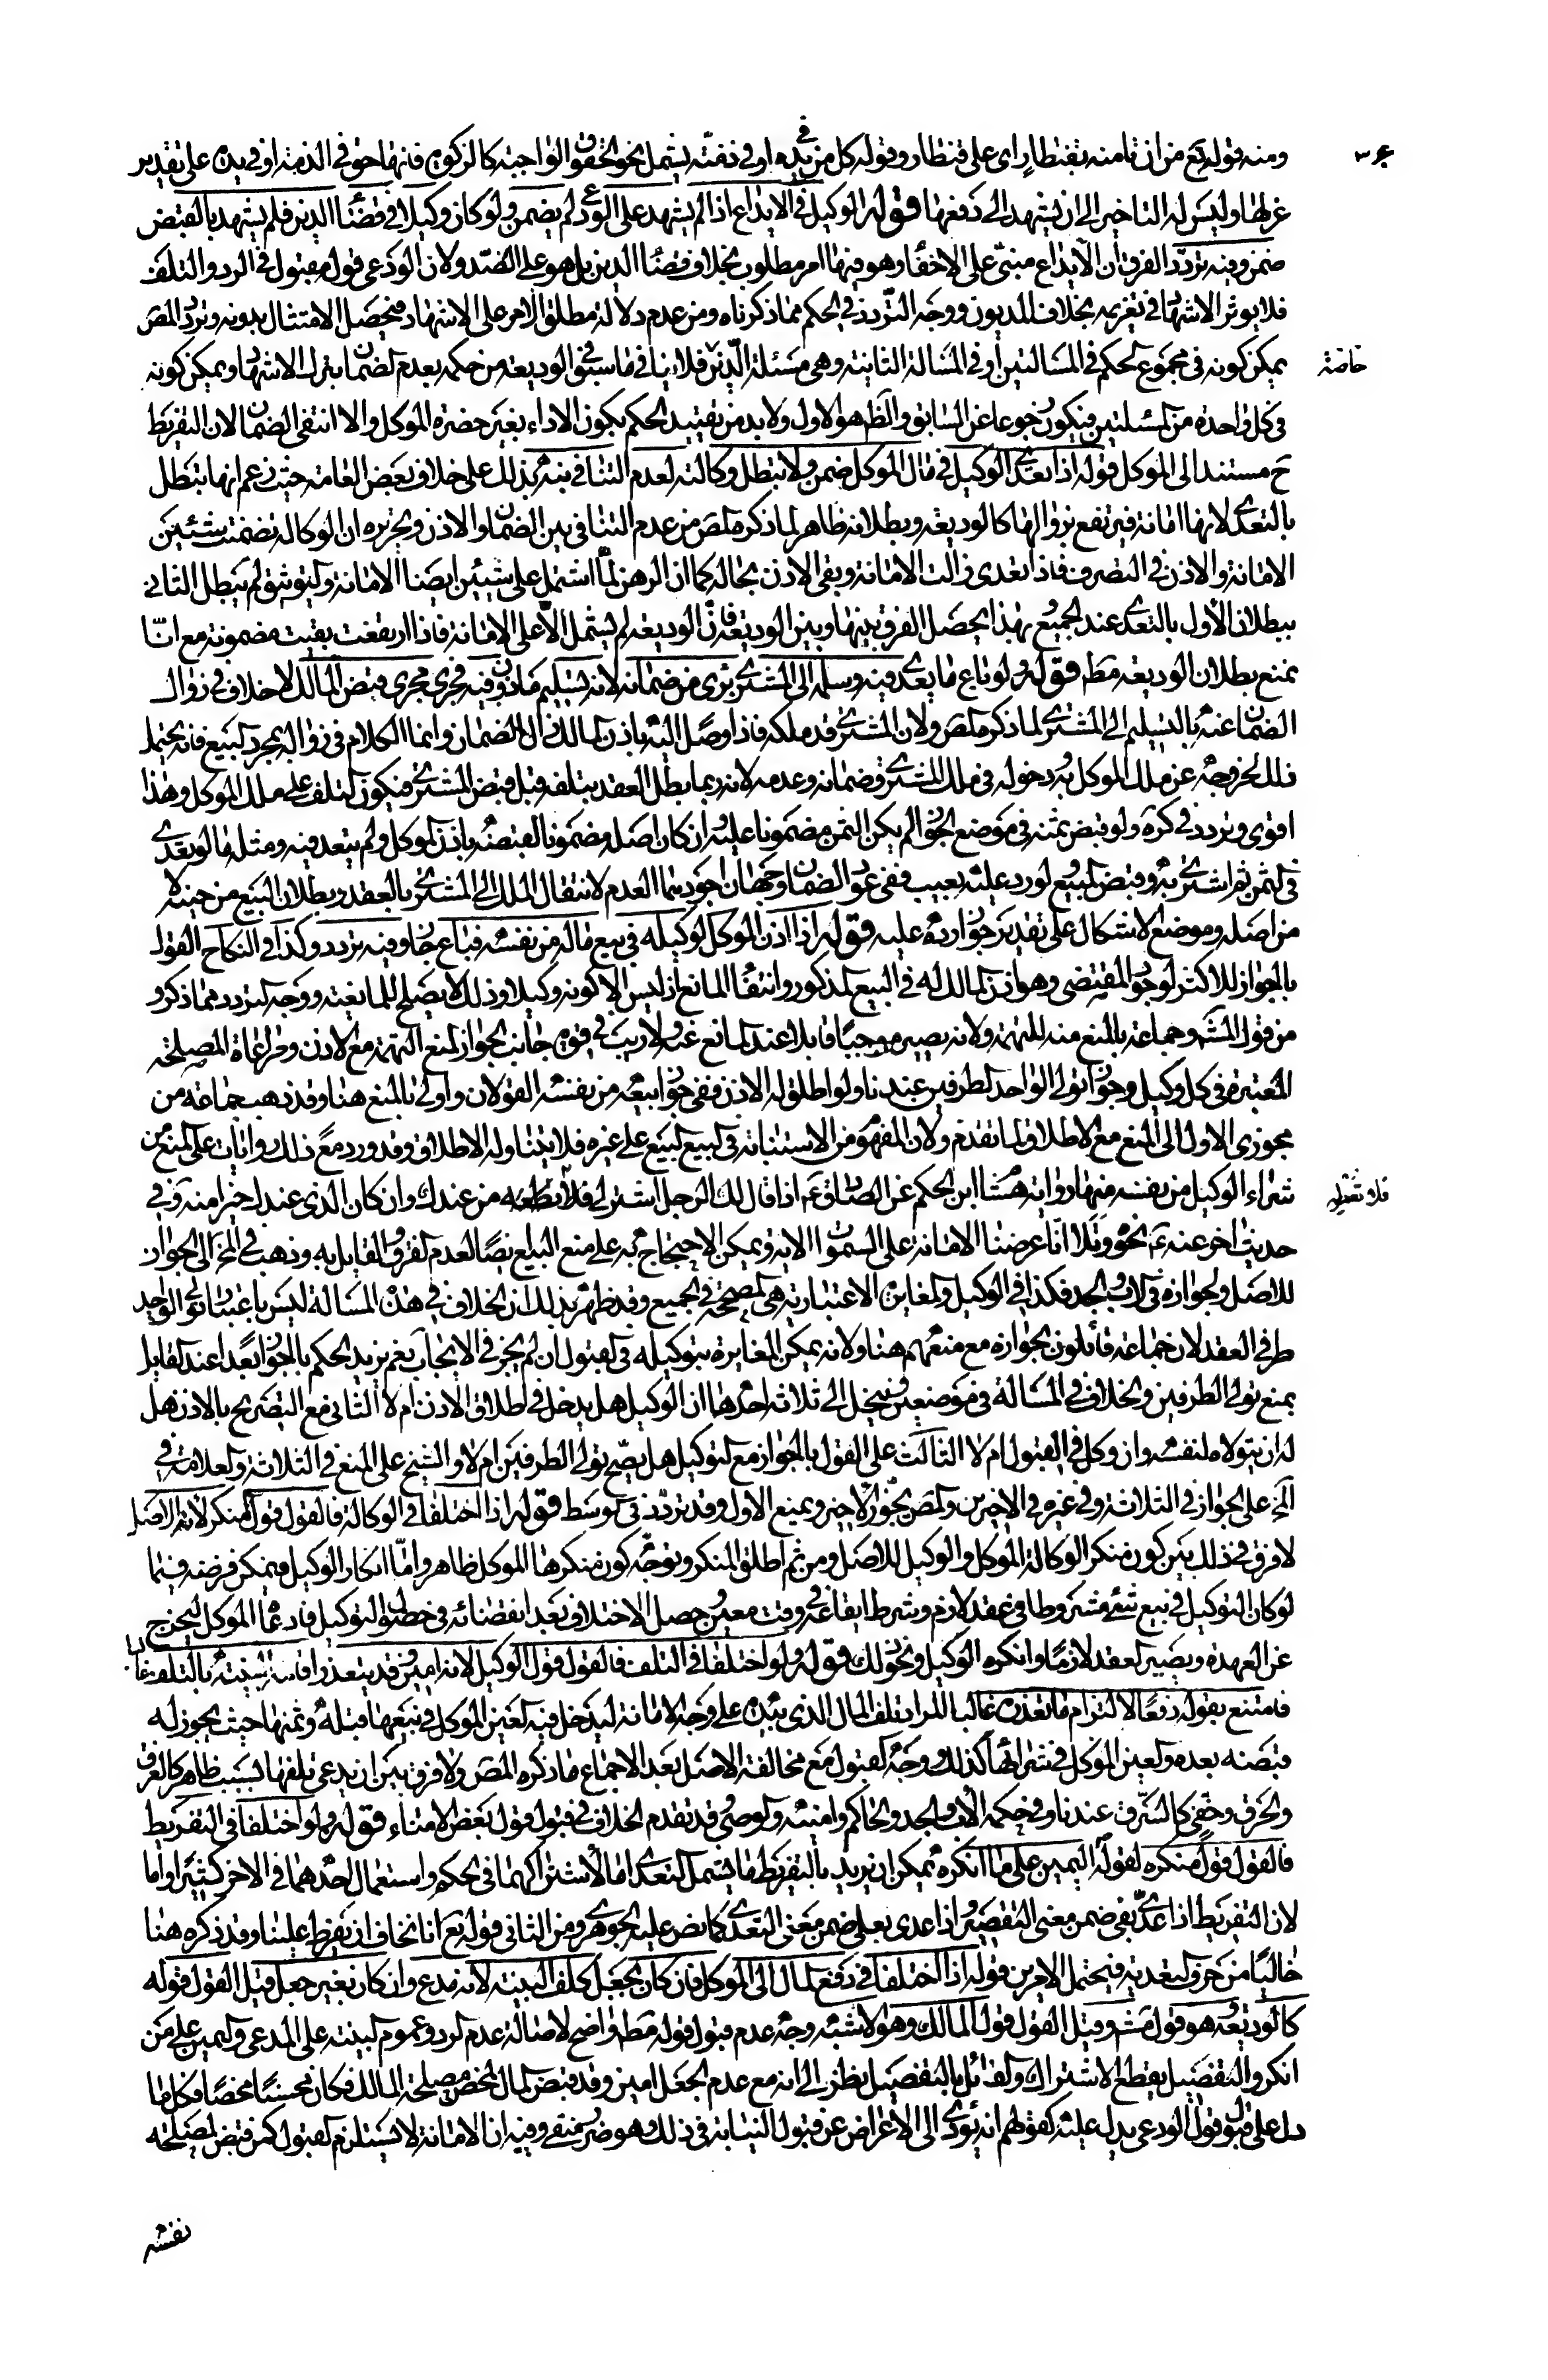 ومنه قوله تع من ان تامنه بقنطار اى على قنطار وقوله كل من في يده او في ذمته يشمل نحو الحقوق الواجبة كالزكوة فانها حق في الذمة او في يده على تقدير
عزلها وليس له التاخير الى ان يشهد الى دفعها قوله الوكيل في الايداع اذا لم يشهد على الودعي لم يضمن ولو كان وكيلا في قضاء الدين فلم يشهد بالقبض
ضمن وفيه تردد الفرق ان الايداع مبني على الاخفاء وهو فيها امر مطلوب بخلاف قضاء الدين بل هو على الضد ولان الودعي قوله مقبول في الرد والتلف
فلا يوثر الاشهاد في تغريمه بخلاف المديون ووجه التردد في الحكم مما ذكرناه ومن عدم دلالة مطلق الامر على الاشهاد فيحصل الامتثال بدونه وتردد المص
يمكن كونه في مجموع الحكم في المسالتين او في المسالة الثانية وهي مسئلة الدين فلا ينافي ما سبق في الوديعة من حكمه بعدم الضمان بترك الاشهاد ويمكن كونه
خاصة
في كل واحدة من المسئلتين فيكون رجوعا عن السابق والظ هو الاول ولا بد من تقييد الحكم بكون الاداء بغير حضرة الموكل والا انتفى الضمان لان التفريط
ح مستند الى الموكل قوله اذا تعدى الوكيل في مال الموكل ضمن ولا تبطل وكالته لعدم التنافي نبه بذلك على خلاف بعض العامة حيث زعم انها تبطل
بالتعدى لانها امانة فيرتفع بزوالها كالوديعة وبطلانه ظاهر لما ذكره المص من عدم التنافي بين الضمان والاذن وتحريره ان الوكالة تضمنت شيئين
الامانة والاذن في التصرف فاذا تعدى زالت الامانة وبقى الاذن بحاله كما ان الرهن لما اشتمل على شيئين ايضا الامانة والتوثق لم يبطل الثاني
ببطلان الاول بالتعدى عند الجميع بهذا يحصل الفرق بينها وبين الوديعة فان الوديعة لم يشتمل الا على الامانة فاذا ارتفعت بقيت مضمونة مع انا
نمنع بطلان الوديعة مط قوله ولو باع ما تعدى فيه وسلمه الى المشترى برئ من ضمانه لانه تسليم ماذون فيه فجرى مجرى قبض المالك لا خلاف في زوال
الضمان عنه بالتسليم الى المشترى لما ذكره المص ولان المشترى قد ملكه فاذا وصل اليه باذن المالك زال الضمان وانما الكلام في زواله بمجرد البيع فانه يحتمل
ذلك لخروجه عن ملك الموكل به ودخوله في ملك المشترى وضمانه وعدمه لانه ربما بطل العقد بتلفه قبل قبض المشترى فيكون التلف على ملك الموكل وهذا
اقوى وتردد في كره ولو قبض ثمنه في موضع الجواز لم يكن الثمن مضمونا عليه وان كان اصله مضمونا لقبضه باذن الموكل ولم يتعد فيه ومثله ما لو تعدى
في الثمن ثم اشترى به وقبض المبيع لو رد عليه بعيب ففي عود الضمان وجهان اجودهما العدم لانتقال الملك الى المشترى بالعقد وبطلان البيع من حينه لا
من اصله وموضع الاشكال على تقدير جواز رده عليه قوله اذا اذن الموكل لوكيله في بيع ماله من نفسه فباع جاز وفيه تردد وكذا في النكاح القول
بالجواز للاكثر لوجود المقتضى وهو اذن المالك له في البيع المذكور وانتفاء المانع اذ ليس الا كونه وكيلا وذلك لا يصلح للمانعية ووجه التردد مما ذكر و
من قول الشيخ وجماعة بالمنع منه للتهمة ولانه يصير موجبا قابلا عند المانع عنه ولا ريب في قوة جانب الجواز لمنع التهمة مع الاذن ومراعاة المصلحة
المعتبرة في كل وكيل وجواز تولى الواحد الطرفين عندنا ولو اطلق له الاذن ففي جواز بيعه من نفسه القولان واولى بالمنع هنا وقد ذهب جماعة من
مجوزى الاول الى المنع مع الاطلاق لما تقدم ولان المفهوم من الاستنابة في البيع البيع على غيره فلا يتناوله الاطلاق وقد ورد مع ذلك روايات على المنع من
شراء الوكيل من نفسه منها رواية هشام ابن الحكم عن الصادق ع اذا قال لك الرجل اشتر لي فلا تعطه من عندك وان كان الذي عندك خيرا منه وفي
فلا تعطه
حديث اخر عنه ع نحوه وتلا انا عرضنا الامانة على السموات الاية ويمكن الاحتجاج به على منع البيع ايضا لعدم الفرق القايل به وذهب في المخ الى الجواز
للاصل ولجوازه في الاب والجد فكذا في الوكيل والمغايرة الاعتبارية هي المصححة في الجميع وقد ظهر بذلك ان الخلاف في هذه المسالة ليس باعتبار تولى الواحد
طرفي العقد لان جماعة قائلون بجوازه مع منعهم هنا ولانه يمكن المغايرة بتوكيله في القبول ان لم يجز في الايجاب نعم يزيد الحكم بالجواز بعدا عند القايل
بمنع تولى الطرفين والخلاف في المسالة في موضعين وينحل الى ثلاثة احدها ان الوكيل هل يدخل في اطلاق الاذن ام لا الثاني مع التصريح بالاذن هل
له ان يتولاه لنفسه وان وكل في القبول ام لا الثالث على القول بالجواز مع التوكيل هل يصح تولى الطرفين ام لا والشيخ على المنع في الثلاثة والعلامة في
المخ على الجواز في الثلاثة وفي غيره في الاخيرين والمص يجوز الاخير ويمنع الاول وقد تردد في الوسط قوله اذا اختلفا في الوكالة فالقول قول المنكر لانه الاصل
لا فرق في ذلك بين كون منكر الوكالة الموكل والوكيل للاصل ومن ثم اطلق المنكر وتوجه كون منكرها الموكل ظاهر واما انكار الوكيل فيمكن فرضه فيما
لو كان التوكيل في بيع شئ مشروطا في عقد لازم وشرط ايقاعه في وقت معين وحصل الاختلاف بعد انقضائه في حصول التوكيل فادعاه الموكل ليخرج
عن العهدة ويصير العقد لازما وانكره الوكيل ونحو ذلك قوله ولو اختلفا في التلف فالقول قول الوكيل لانه امين وقد يتعذر اقامة البينة بالتلف غالبا
فاقتنع بقوله دفعا لالتزام ما تعذره غالبا المراد تلف المال الذي بيده على وجه الامانة ليدخل فيه العين الموكل في بيعها قبله وثمنها حيث يجوز له
قبضه بعده والعين الموكل في شرائها كذلك ووجه القبول مع مخالفة الاصل بعد الاجماع ما ذكره المص ولا فرق بين ان يدعى تلفها بسبب ظاهر كالغرق
والحرق وخفى كالسرق عندنا وفي حكمه الاب والجد والحاكم وامينه والوصي وقد تقدم الخلاف في قبول قول بعض الامناء قوله ولو اختلفا في التفريط
فالقول قول منكره لقوله ع اليمين على ما انكره يمكن ان يريد بالتفريط ما يشمل التعدى اما لاشتراكهما في الحكم واستعمال احدهما في الاخر كثيرا واما
لان التفريط اذا عدى بفي ضمن معنى التقصير واذا عدى بعلى ضمن معنى التعدى كما نص عليه الجوهرى ومن الثاني قوله تع اننا نخاف ان يفرط علينا وقد ذكره هنا
خاليا من حرف التعدية فيحتمل الامرين قوله اذا اختلفا في دفع المال الى الموكل فان كان بجعل كلف البينة لانه مدع وان كان بغير جعل قيل القول قوله
كالوديعة وهو قول مشهور وقيل القول قول المالك وهو الاشبه وجه عدم قبول قوله مط واضح لاصالة عدم الرد وعموم البينة على المدعى واليمين على من
انكر والتفصيل يقطع الاشتراك والقائل بالتفصيل نظر الى انه مع عدم الجعل امين وقد قبض المال لمحض مصلحة المالك فكان محسنا محضا وكل ما
دل على قبول قول الودعى يدل عليه كقولهم انه يؤدى الى الاعراض عن قبول النيابة في ذلك وهو ضرر منفى وفيه ان الامانة لا يستلزم القبول كمن قبض لمصلحة
نفسه